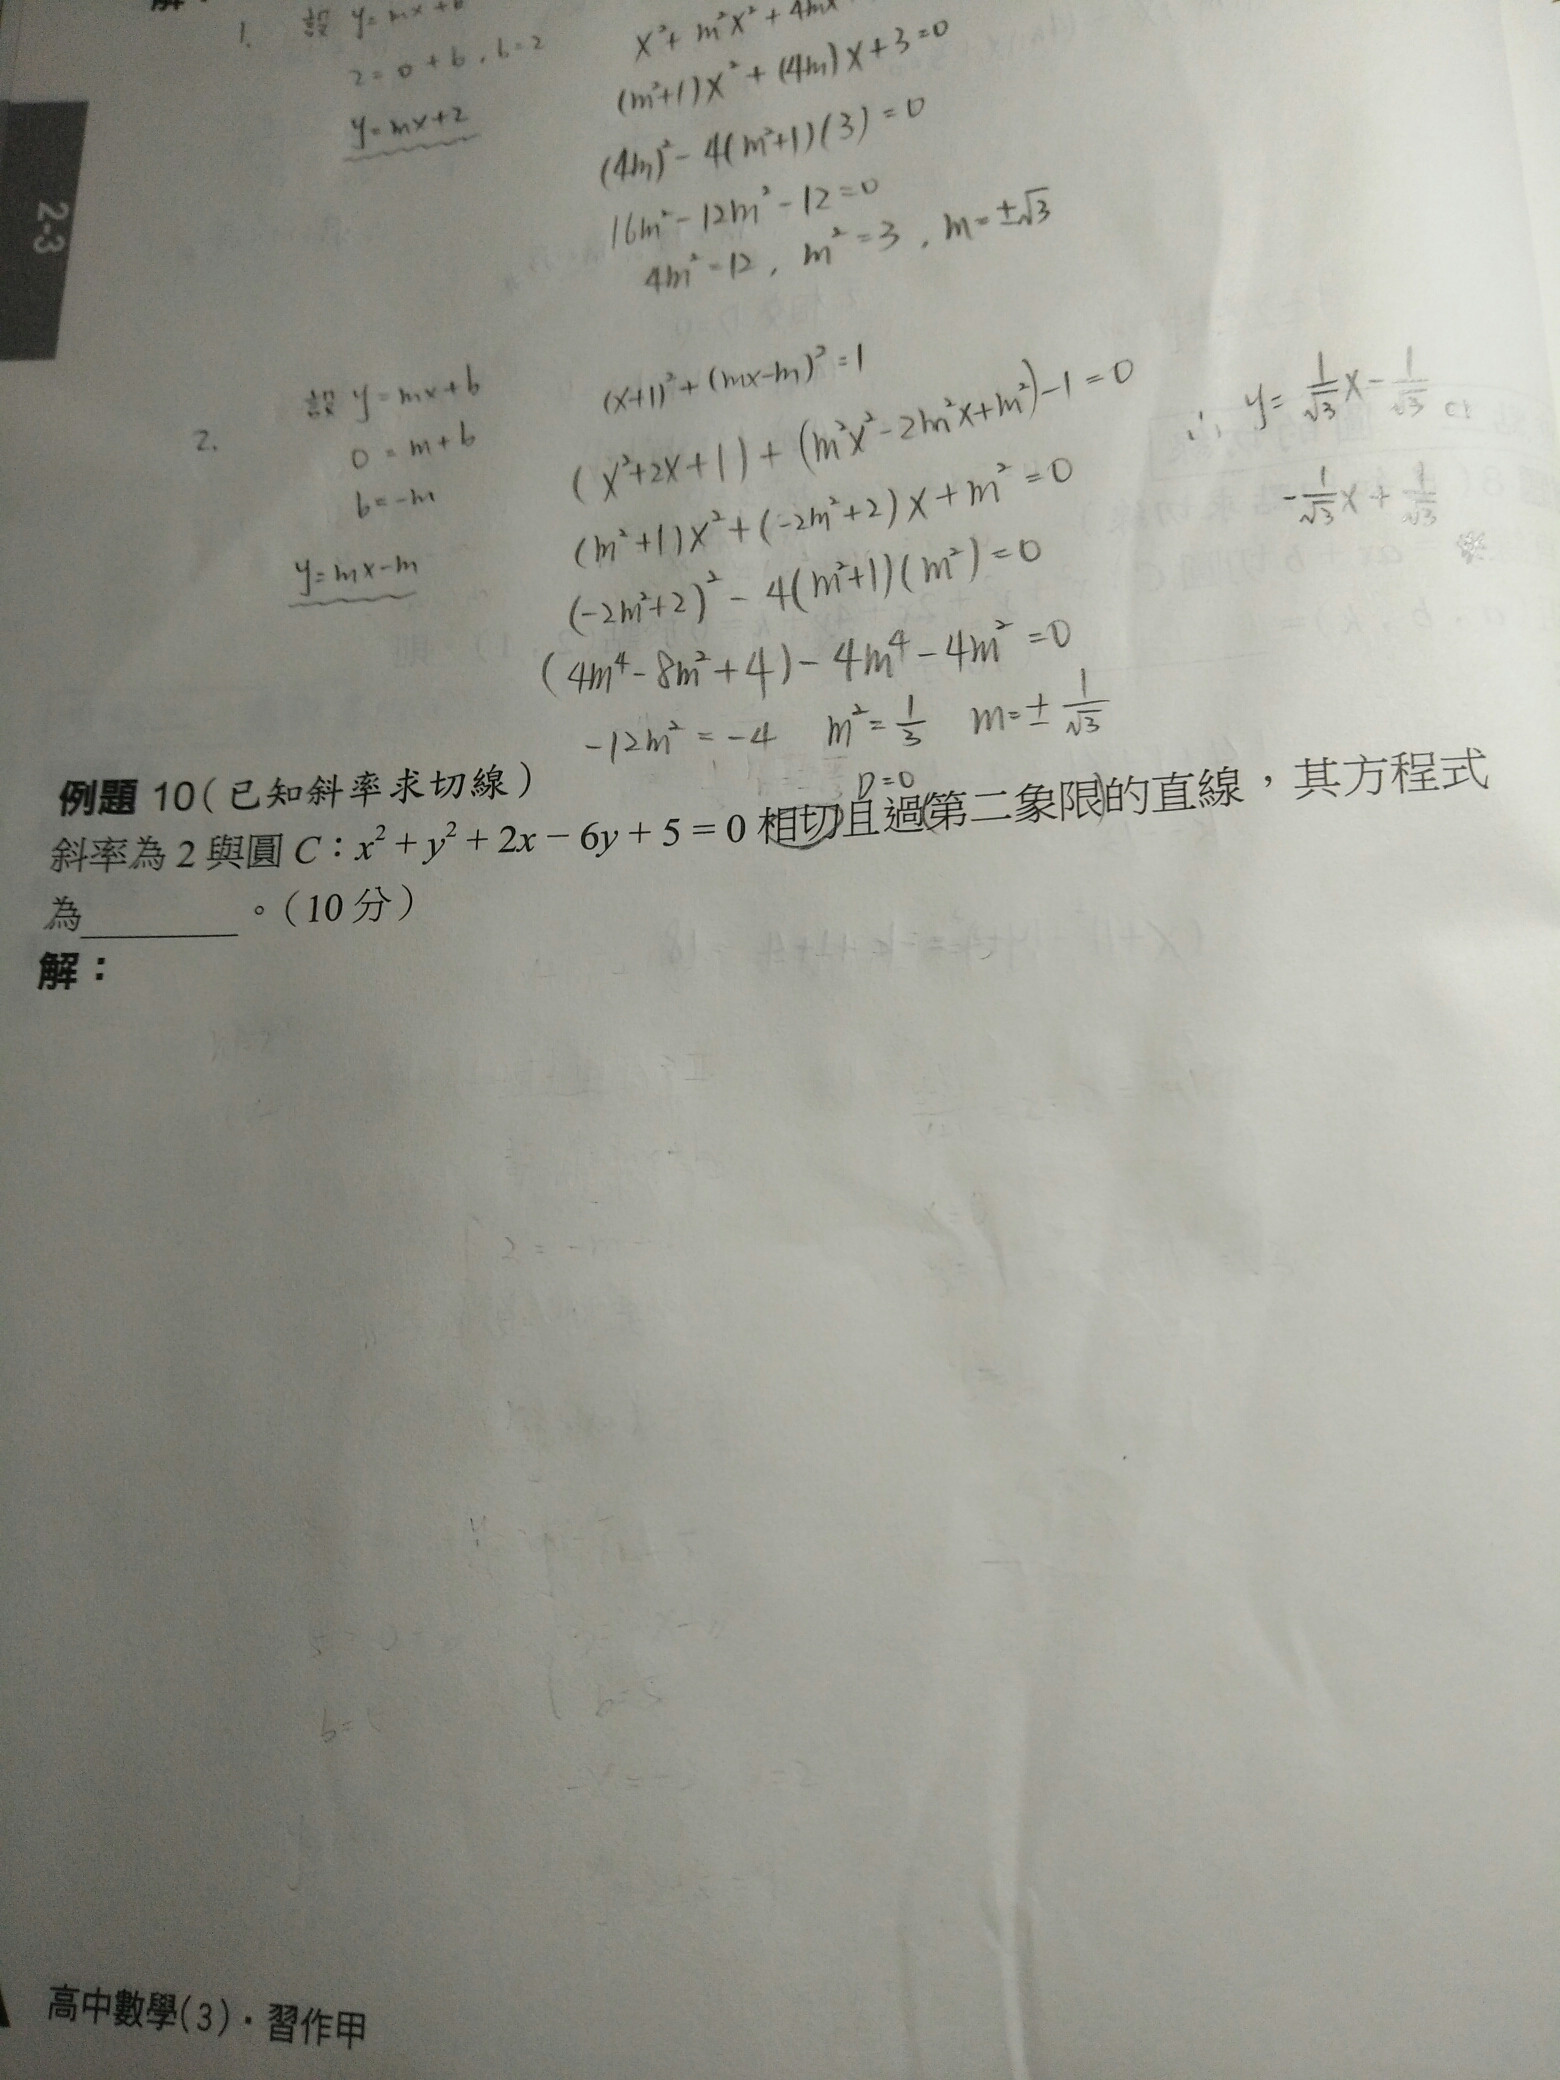 1. 設 y=mx+b
2=0+b, b=2
y=mx+2
x²+m²x²+4mx
(m²+1)x²+(4m)x+3=0
(4m)²-4(m²+1)(3)=0
16m²-12m²-12=0
4m²=12, m²=3, m=±√3
2-3
2. 設 y=mx+b
0=m+b
b=-m
y=mx-m
(x+1)²+(mx-m)²=1
(x²+2x+1)+(m²x²-2m²x+m²)-1=0
(m²+1)x²+(-2m²+2)x+m²=0
(-2m²+2)²-4(m²+1)(m²)=0
(4m⁴-8m²+4)-4m⁴-4m²=0
-12m²=-4 m²=1/3 m=±1/√3
∴ y=1/√3x-1/√3 or
-1/√3x+1/√3
例題 10(已知斜率求切線)
D=0
斜率為 2 與圓 C：x²+y²+2x-6y+5=0 相切且過第二象限的直線，其方程式
為________。(10 分)
解：
高中數學(3)·習作甲